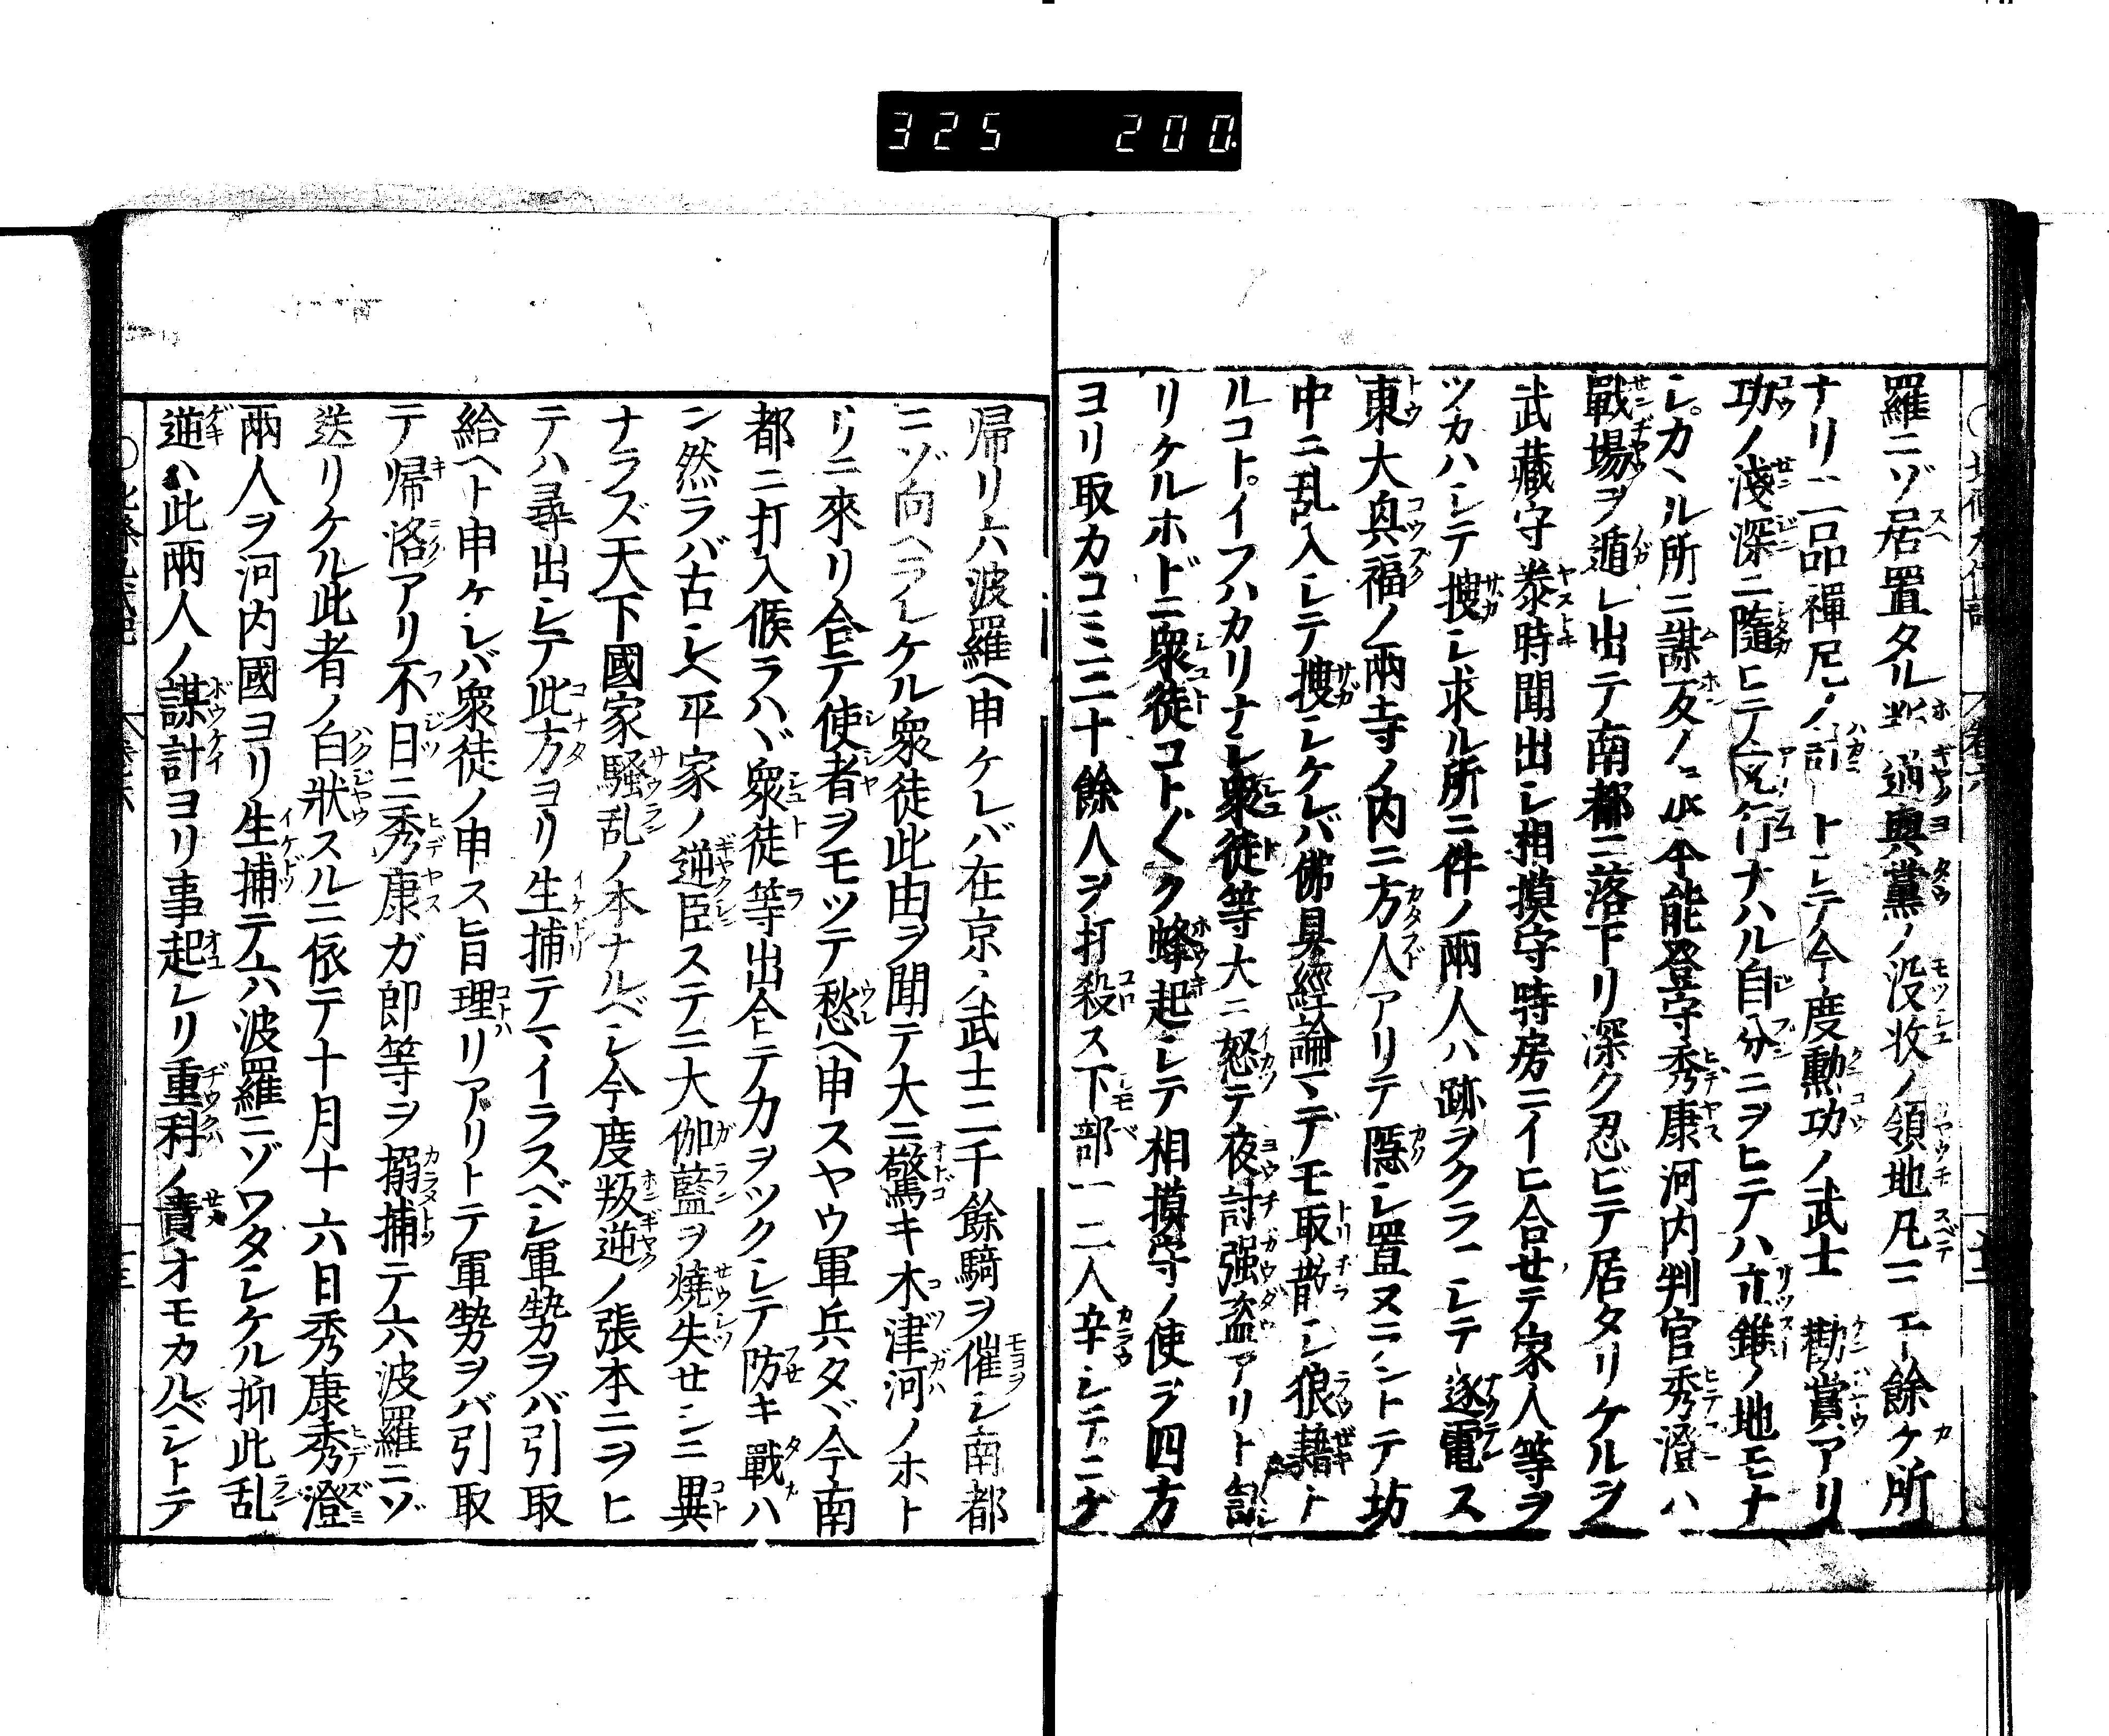 325 200
羅ニゾ居置タル 逆與黨ノ没收ノ領地凡三千餘ケ所
ナリ二品禪尼ノ計トシテ今度勲功ノ武士 勸賞アリ
功ノ淺深ニ隨ヒテ 行ナハル自分ニヲヒテハ立錐ノ地モナ
シカヽル所ニ謀反ノ 能登守秀康河内判官秀澄ハ
戰場ヲ遁レ出テ南都ニ落下リ深ク忍ビテ居タリケルヲ
武藏守泰時聞出シ相摸守時房ニイヒ合セテ家人等ヲ
ツカハシテ捜シ求ル所ニ件ノ兩人ハ跡ヲクラマシテ逐電ス
東大興福ノ兩寺ノ内ニ方人アリテ隱シ置ヌラントテ坊
中ニ乱入シテ捜シケレバ佛具經論マデモ取散シ狼藉ト
ルコト。イフハカリナシ衆徒等大ニ怒テ夜討强盗アリト訇
リケルホドニ衆徒コト〴〵ク蜂起シテ相摸守ノ使ヲ四方
ヨリ取カコミ三十餘人ヲ打殺ス下部一二人辛シテニゲ
帰リ六波羅ヘ申ケレバ在京ノ武士二千餘騎ヲ催シ南都
ニゾ向ヘラレケル衆徒此由ヲ聞テ大ニ驚キ木津河ノホト
リニ來リ合ヒテ使者ヲモツテ愁ヘ申スヤウ軍兵タヾ今南
都ニ打入候ラハヾ衆徒等出合ヒテ力ヲツクシテ防キ戰ハ
ン然ラバ古シヘ平家ノ逆臣ステニ大伽藍ヲ燒失セシニ異
ナラズ天下國家騷乱ノ本ナルベシ今度叛逆ノ張本ニヲヒ
テハ尋出シテ此方ヨリ生捕テマイラスベシ軍勢ヲバ引取
給ヘト申ケレバ衆徒ノ申ス旨理リアリトテ軍勢ヲバ引取
テ帰洛アリ不日ニ秀康ガ郎等ヲ搦捕テ六波羅ニゾ
送リケル此者ノ白狀スルニ依テ十月十六日秀康秀澄
兩人ヲ河内國ヨリ生捕テ六波羅ニゾワタシケル抑此乱
逆ハ此兩人ノ謀計ヨリ事起レリ重科ノ責オモカルベシトテ